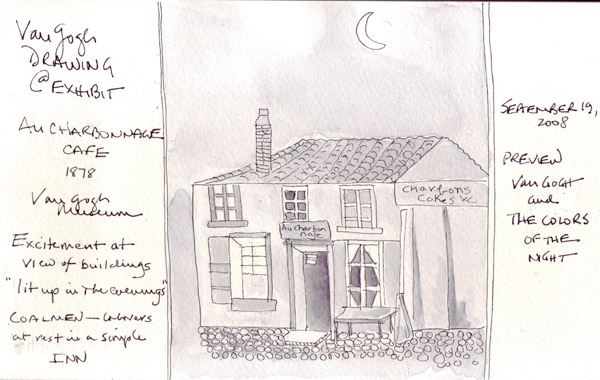 Van Gogh
DRAWING
@ EXHIBIT
AU CHARBONNAGE
CAFE
1878
Van Gogh
Museum
Excitement at
view of buildings
"lit up in the evenings"
COALMEN — laborers
at rest in a simple
INN
Au Charbon
nage
Charbons
Cokes &c.
SEPTEMBER 19,
2008
PREVIEW
VAN GOGH
and
THE COLORS
OF THE
NIGHT